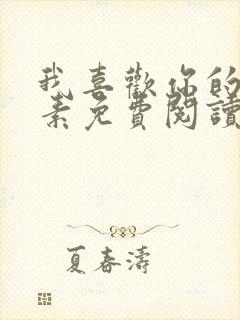 我喜歡你的
素免費閱讀
夏春濤